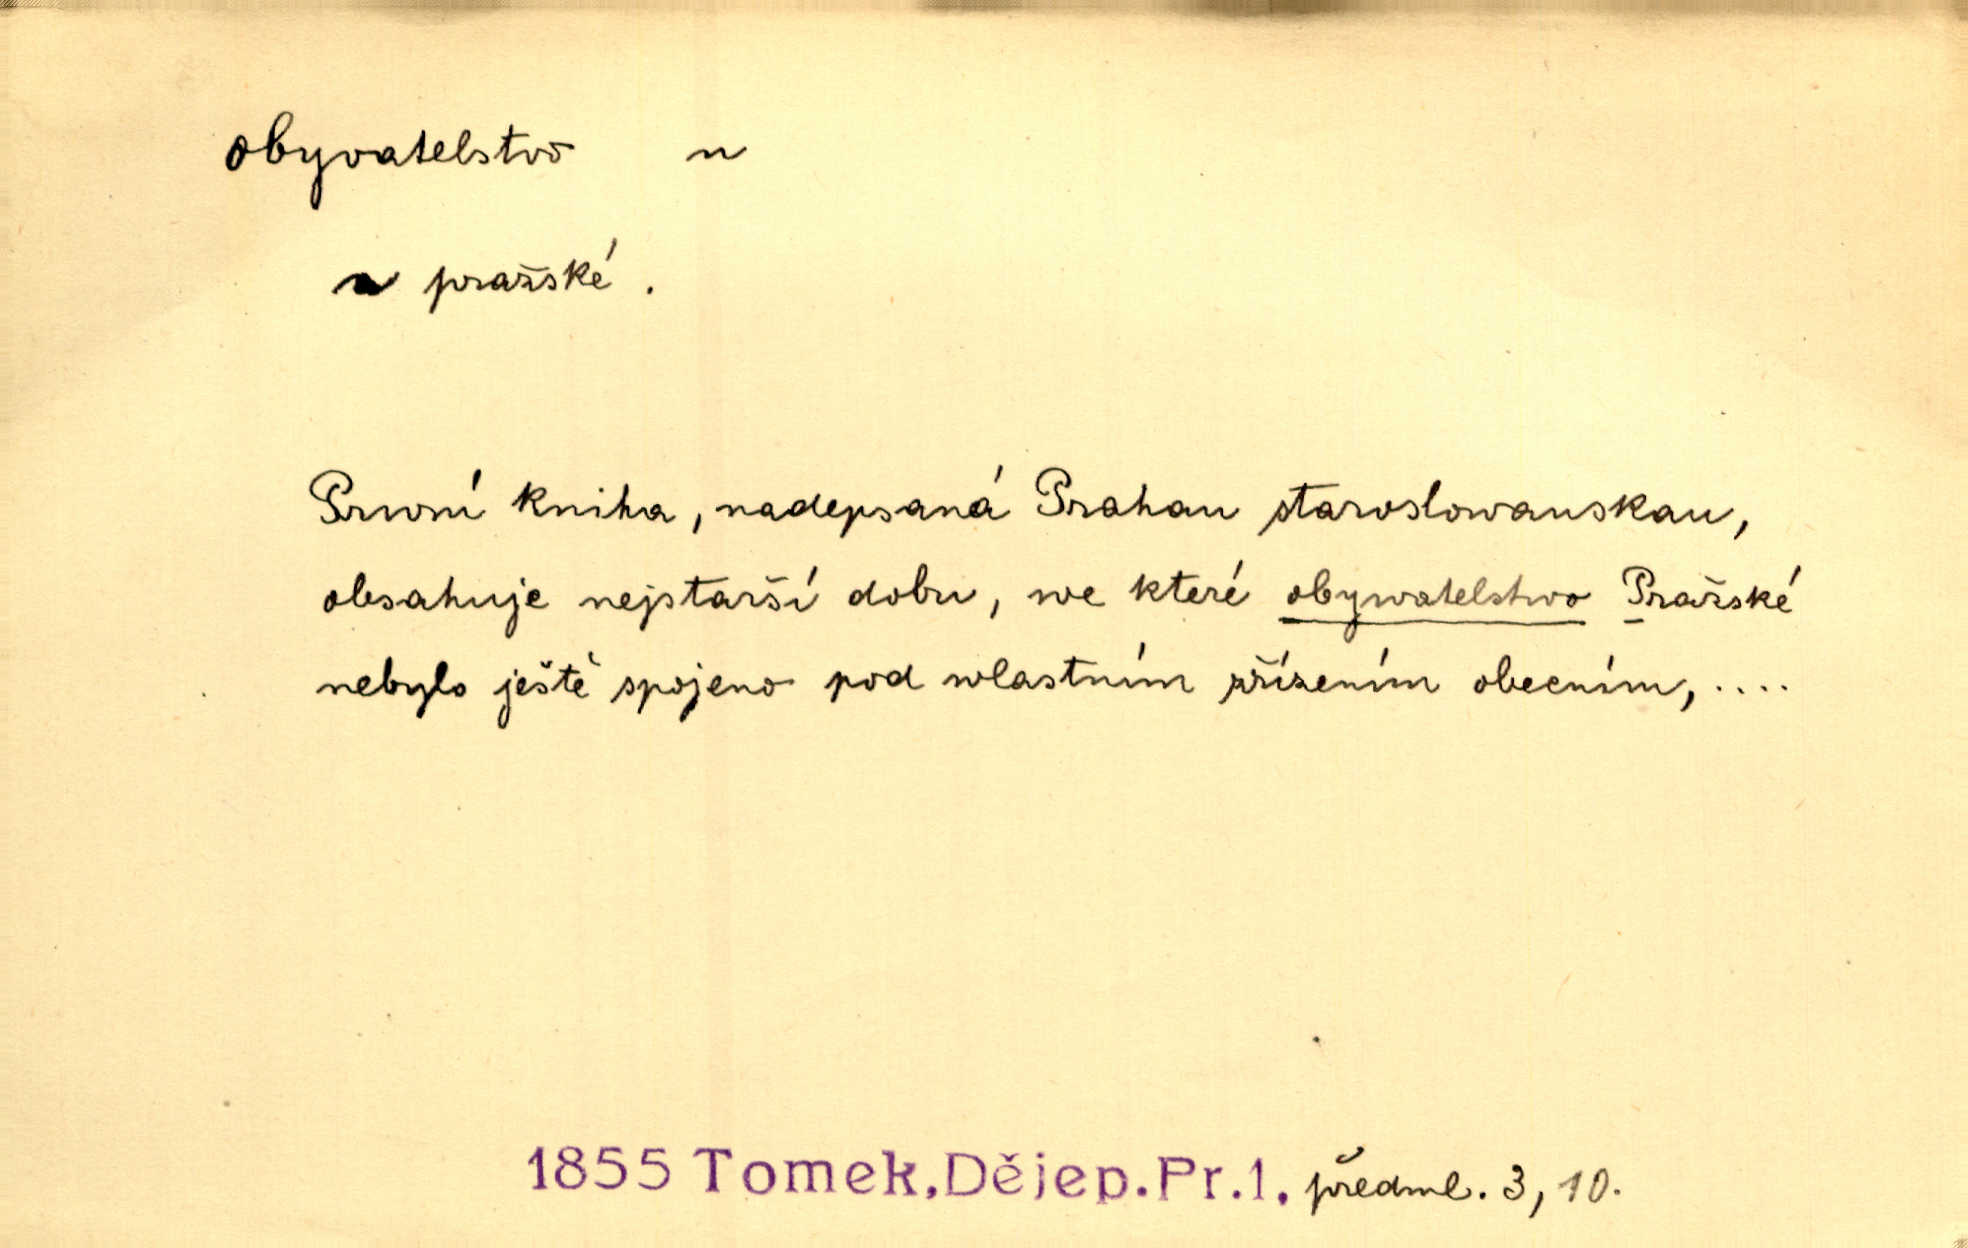 obyvatelstvo n
~ pražské.
Prwní kniha, nadepsaná Prahau staroslowanskau,
obsahuje nejstarší dobu, we které obywatelstwo Pražské
nebylo ještě spojeno pod wlastním zřízením obecním, ....
1855 Tomek, Dějep. Pr. 1, předml. 3, 10.